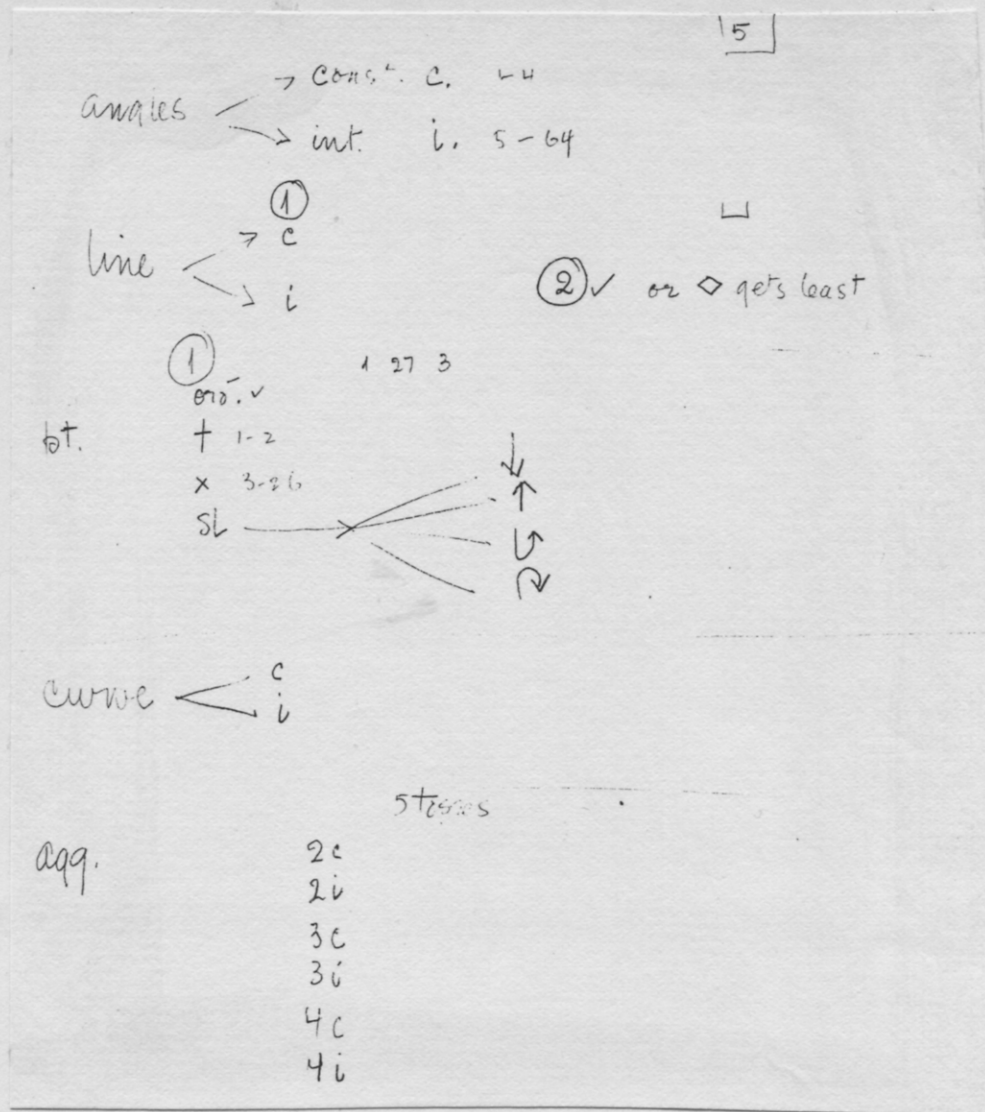 5
angles → const. c. 1-4
→ int. i. 5-64
1
line → c
→ i
2 ✓ or ◇ gets least
1
1 27 3
ord. ✓
pt. + 1-2
x 3-26
SL ↓
↑
curve c
i
agg. 2c
2i
3c
3i
4c
4i